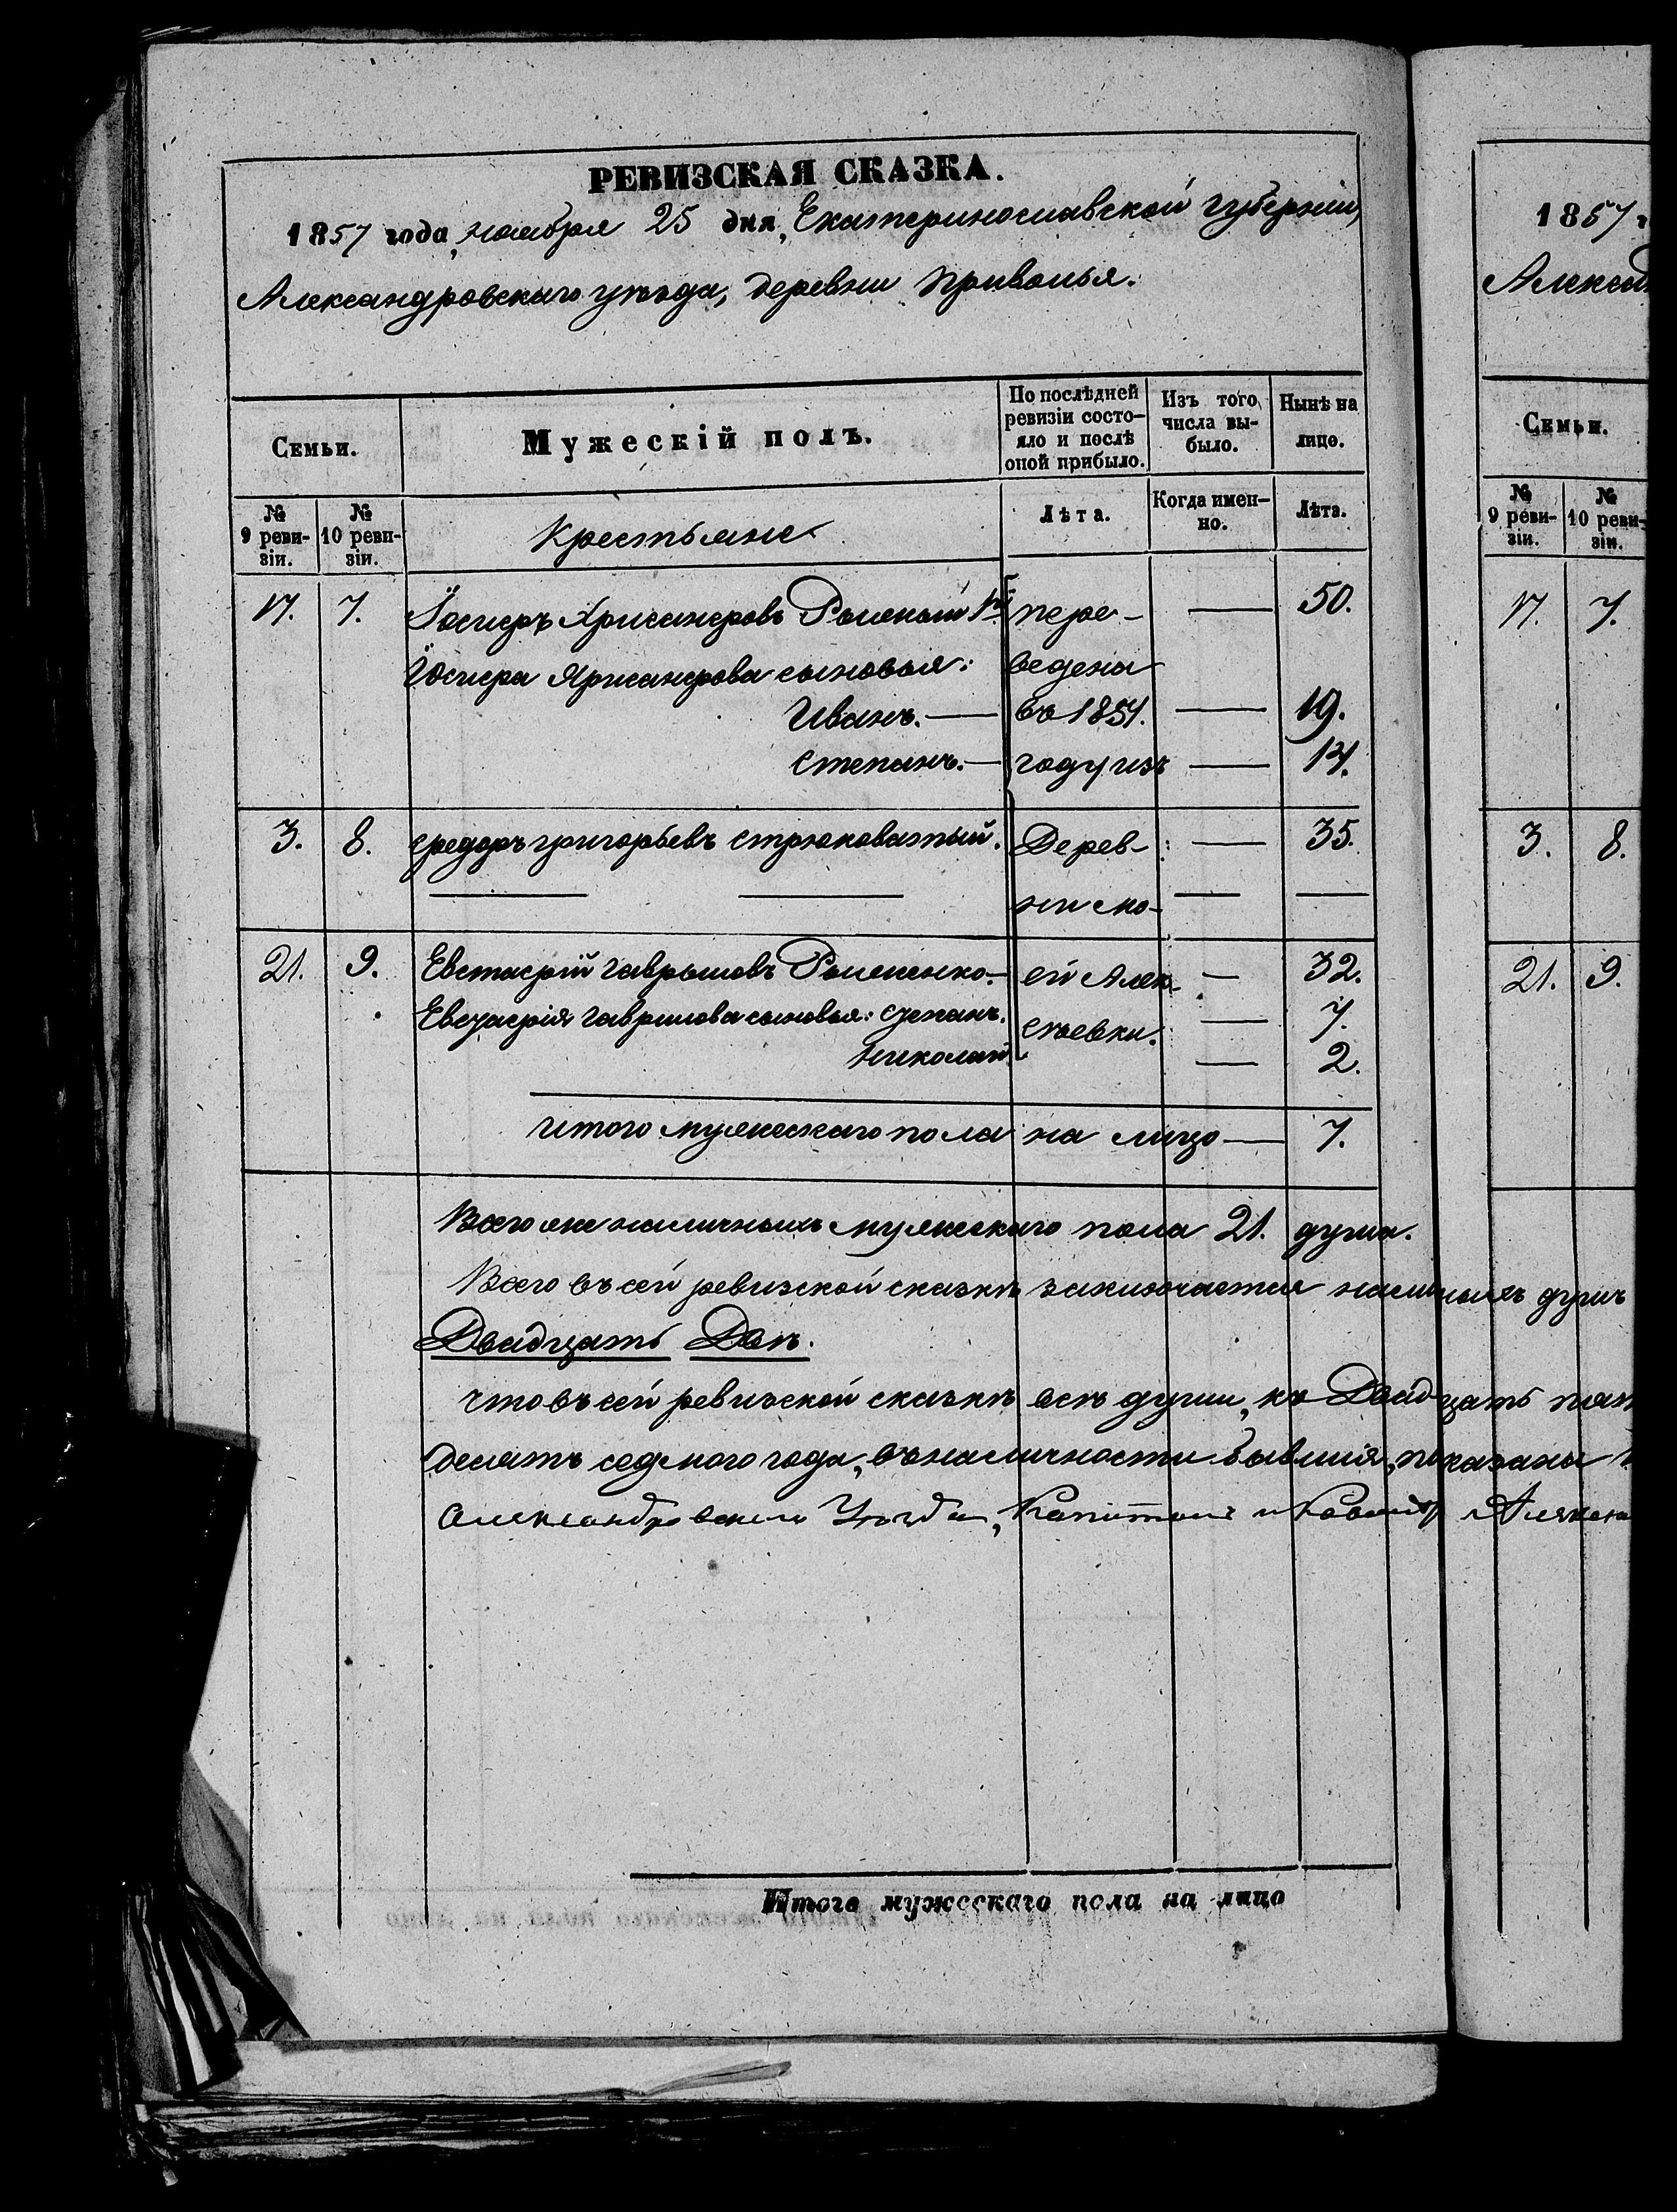 РЕВИЗСКАЯ СКАЗКА.
1857 года, ноября 25 дня, Екатеринославской губерніи,
Александровскаго уѣзда, деревни Приволья.
Семьи.
Мужескій полъ.
По послѣдней ревизіи состо-
яло и послѣ оной прибыло.
Изъ того числа вы-
было.
Нынѣ на лицо.
№ 9 реви-
зіи.
№ 10 реви-
зіи.
Крестьяне
Лѣта.
Когда имен-
но.
Лѣта.
17. 7. Іосифъ Хрисанфовъ пере- — 50.
Іосифа Хрисанфова сыновья: ведена
Иванъ. — въ 1857. — 19.
Степанъ. — году изъ — 14.
3. 8. Федоръ Григорьевъ Стрюковатый. Дерев- — 35.
— — ни — —
21. 9. Евстафій Гаврыловъ Ромененко. — ей Алек- — 32.
Евстафія Гаврилова сыновья: Степанъ. сѣевки. — 7.
Николай — 2.
Итого мужескаго пола на лицо — 7.
Всего же наличныхъ мужескаго пола 21. душа.
Всего въ сей ревизской сказкѣ заключается наличныхъ душъ
Двадцать Двѣ.
Что въ сей ревизской сказкѣ всѣ души, по Двадцать пят
десятъ седьмого года, въ наличности бывшія, показаны
Александровскаго Уѣзда,
Итого мужескаго пола на лицо
1857 г
Алексан
Семьи.
№ 9 реви-
зіи.
№ 10 реви-
зіи.
17. 7.
3. 8.
21. 9.